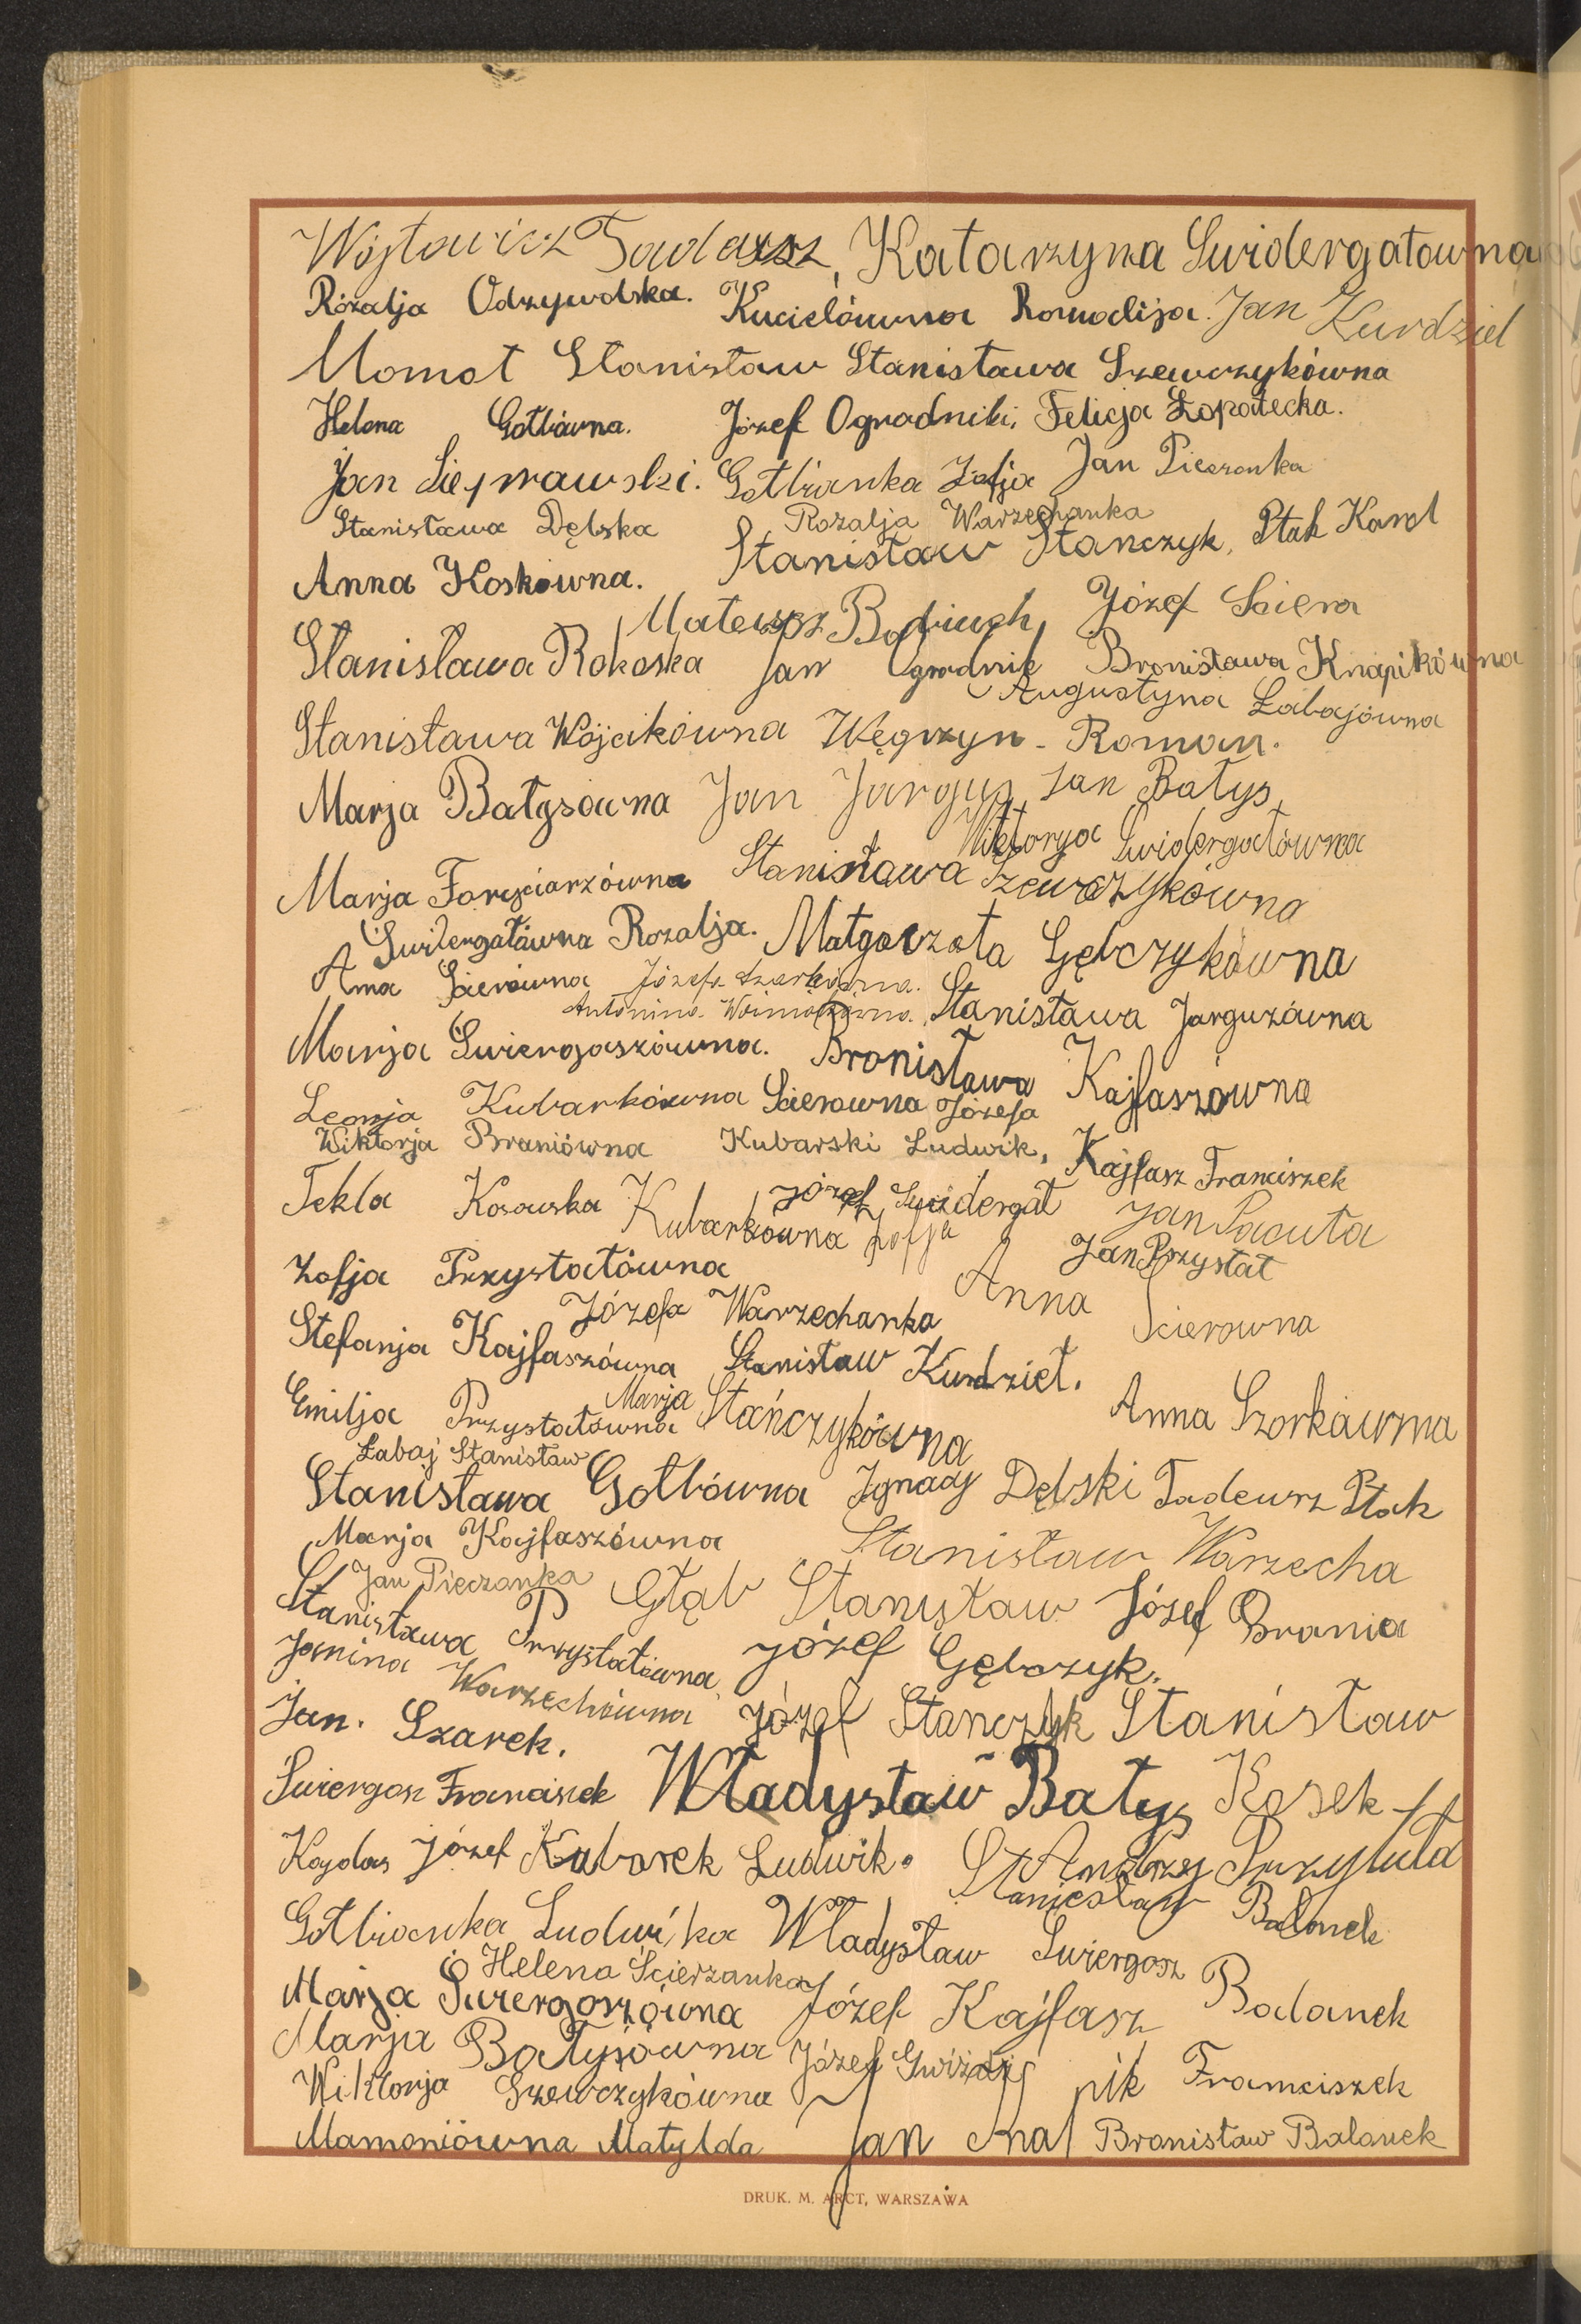 Wójtowicz Tadeusz, Katarzyna Swidergałówna
Rózalja Odrzywolska. Kucielówna Romalija. Jan Kurdziel
Momot Stanisław Stanisława Szewczykówna
Helena Gotbówna. Józef Ogrodnik, Felicja Łopatecka.
Jan Sieprawski. Gotbianka Zofja Jan Pieczonka
Stanisława Dębska Rozalja Warzechanka
Anna Koskówna. Stanisław Stanczyk, Ptak Karol
Mateusz Józef Sciera
Stanisława Rokoska Jan Ogrodnik Bronisława Knapikówna
Augustyna Łabajówna
Stanisława Wójcikówna Węgrzyn - Roman.
Marja Batysówna Jan Jargus Jan Batys,
Wiktorya Swidergałówna
Marja Stanisława Szewczykówna
Swidergałówna Rozalja. Małgorzata Gębczykówna
Anna Scierówna Józefa Szarkówna.
Antonina Stanisława Jarguzówna
Marja Swiergoszówna. Bronisława Kajfaszówna
Leonja Kubarkówna Scierowna Józefa
Wiktorja Braniówna Kubarski Ludwik, Kajfasz Franciszek
Tekla Kosowska Kubarkówna Zofja Józef Swidergał Jan Pacuta
Zofja Przystałówna Jan Przystał
Józefa Warzechanka Anna Scierowna
Stefanja Kajfaszówna Stanisław Kurdziel.
Emilja Przystałówna Marja Stańczykówna Anna Szorkówna
Łabaj Stanisław
Stanisława Gotbówna Ignacy Dębski Tadeusz Ptak
Marja Kajfaszówna Stanisław Warzecha
Jan Pieczonka Głąb Stanisław Józef Brania
Stanisława Przystałówna Józef Gębczyk.
Janina Warzechówna Józef Stanczyk Stanisław
Jan. Szarek.
Swiergosz Franciszek Władysław Batys Kosek
Kajdas Józef Kubarek Ludwik. St Andrzej Przytuła
Staniesław Balonek
Gotbianka Ludwika Władysław Swiergosz
Helena Ścierzanka
Marja Swiergoszówna Józef Kajfasz Balanek
Marja Batysówna Józef Gwiżdż
Wiktorja Szewczykówna pik Franciszek
Mamoniówna Matylda Jan Knap Bronisław Balanek
DRUK. M. ARCT, WARSZAWA